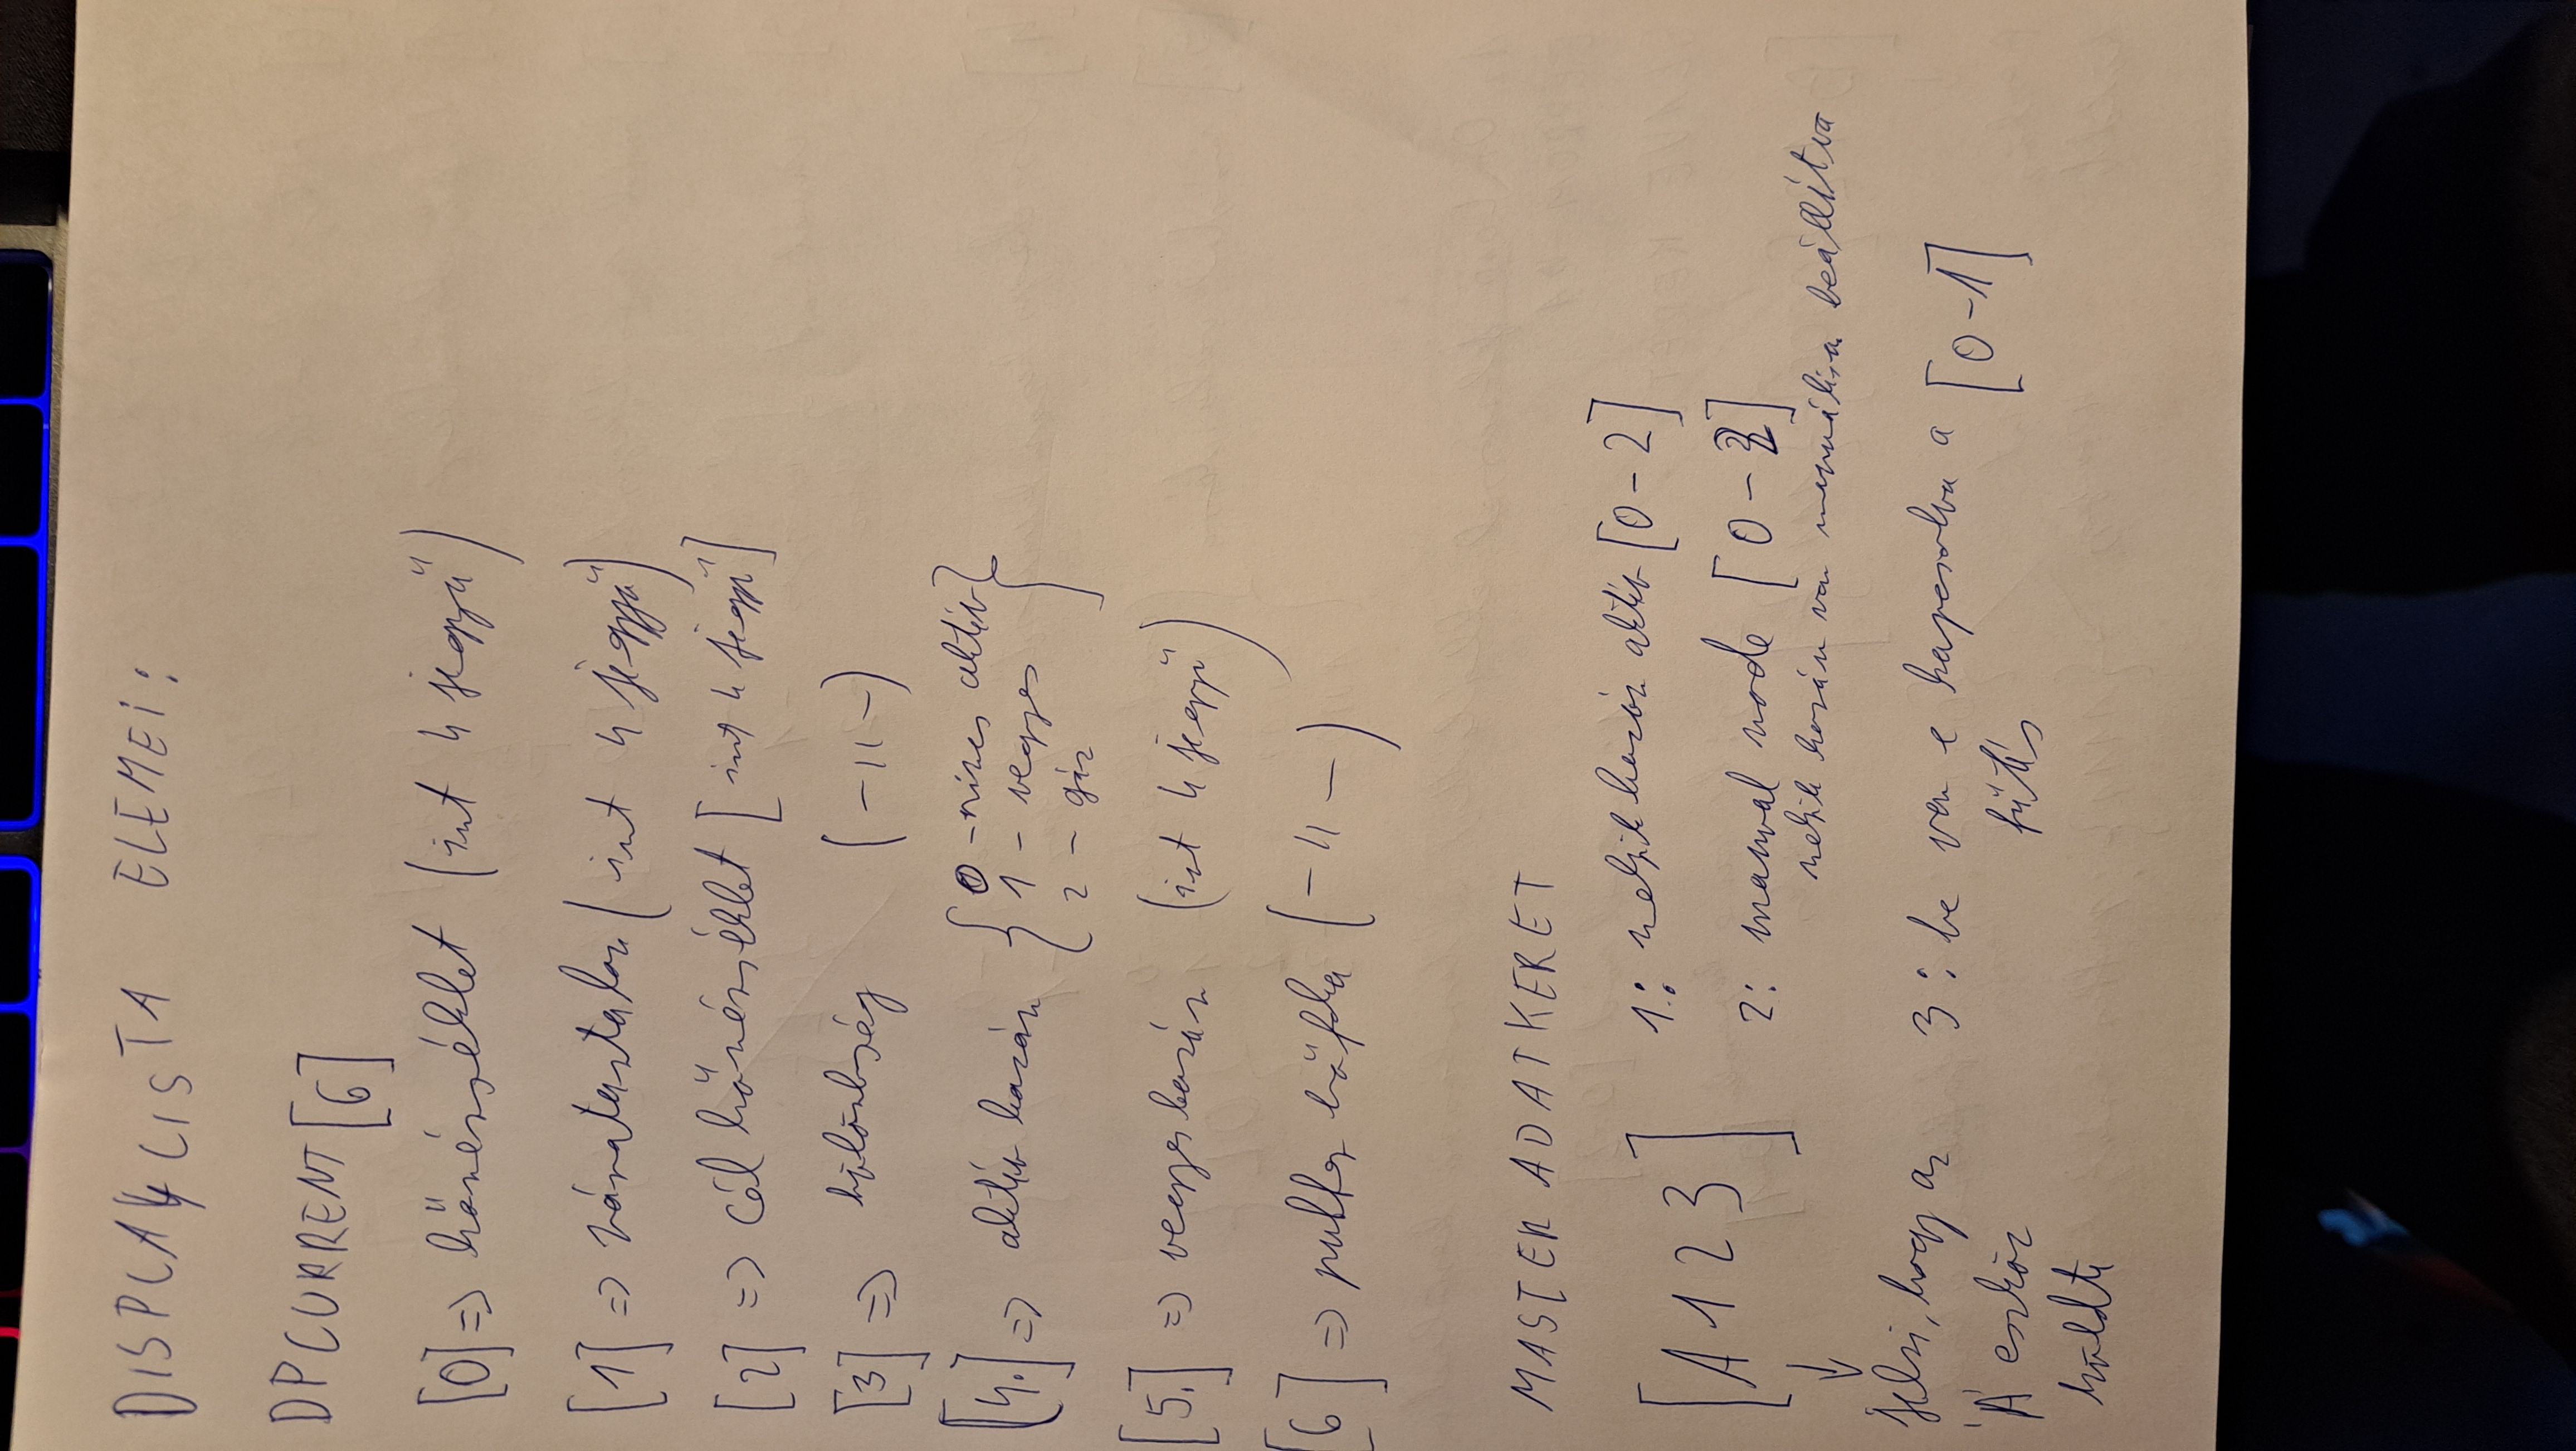 DISPLAY LISTA ELEMEI:
DPCURRENT [6]
[0] => hőmérséklet (int 4 jegyű)
[1] => páratartalom (int 4 jegyű)
[2] => cél hőmérséklet [int 4 jegyű]
[3] => különbség (-11-)
[4.] => aktív kazán { 0 - nincs aktív
1 - vegyes
2 - gáz }
[5.] => vegyeskazán (int 4 jegyű)
[6] => puffer hőfoka (-11-)
MASTER ADATKERET
[A 1 2 3]
1.: melyik kazán aktív [0-2]
2: manual mode [0-2]
melyik kazán van manuálisra beállítva
3: be van e kapcsolva a fűtés [0-1]
↓
Jelzi, hogy az
'A' eszköz
küldte